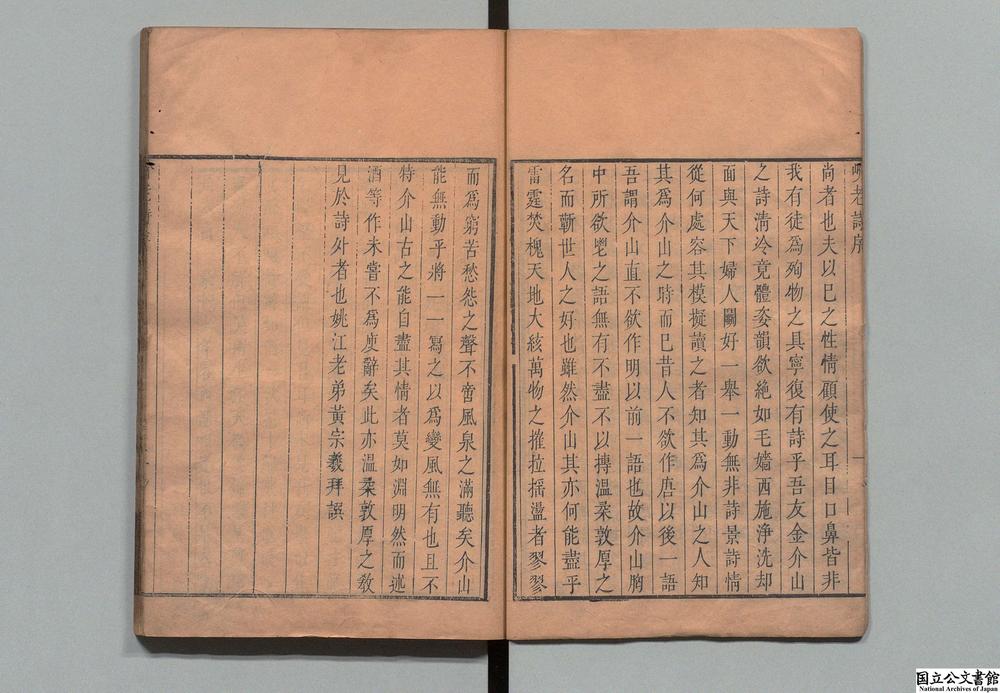 老詩序
尚者也夫以巳之性情顧使之耳目口鼻皆非
我有徒爲殉物之具寧復有詩乎吾友金介山
之詩清冷竟體姿韻欲絶如毛嬙西施淨洗却
面與天下婦人鬬好一舉一動無非詩景詩情
從何處容其模擬讀之者知其爲介山之人知
其爲介山之時而巳昔人不欲作唐以後一語
吾謂介山直不欲作明以前一語也故介山胸
中所欲鬯之語無有不盡不以摶溫柔敦厚之
名而蘄世人之好也雖然介山其亦何能盡乎
雷霆焚槐天地大絃萬物之摧拉摇盪者翏翏
而爲窮苦愁怨之聲不啻風泉之滿聽矣介山
能無動乎將一一冩之以爲變風無有也且不
特介山古之能自盡其情者莫如淵明然而述
酒等作未嘗不爲庾辭矣此亦溫柔敦厚之教
見於詩外者也姚江老弟黃宗羲拜譔
国立公文書館
National Archives of Japan